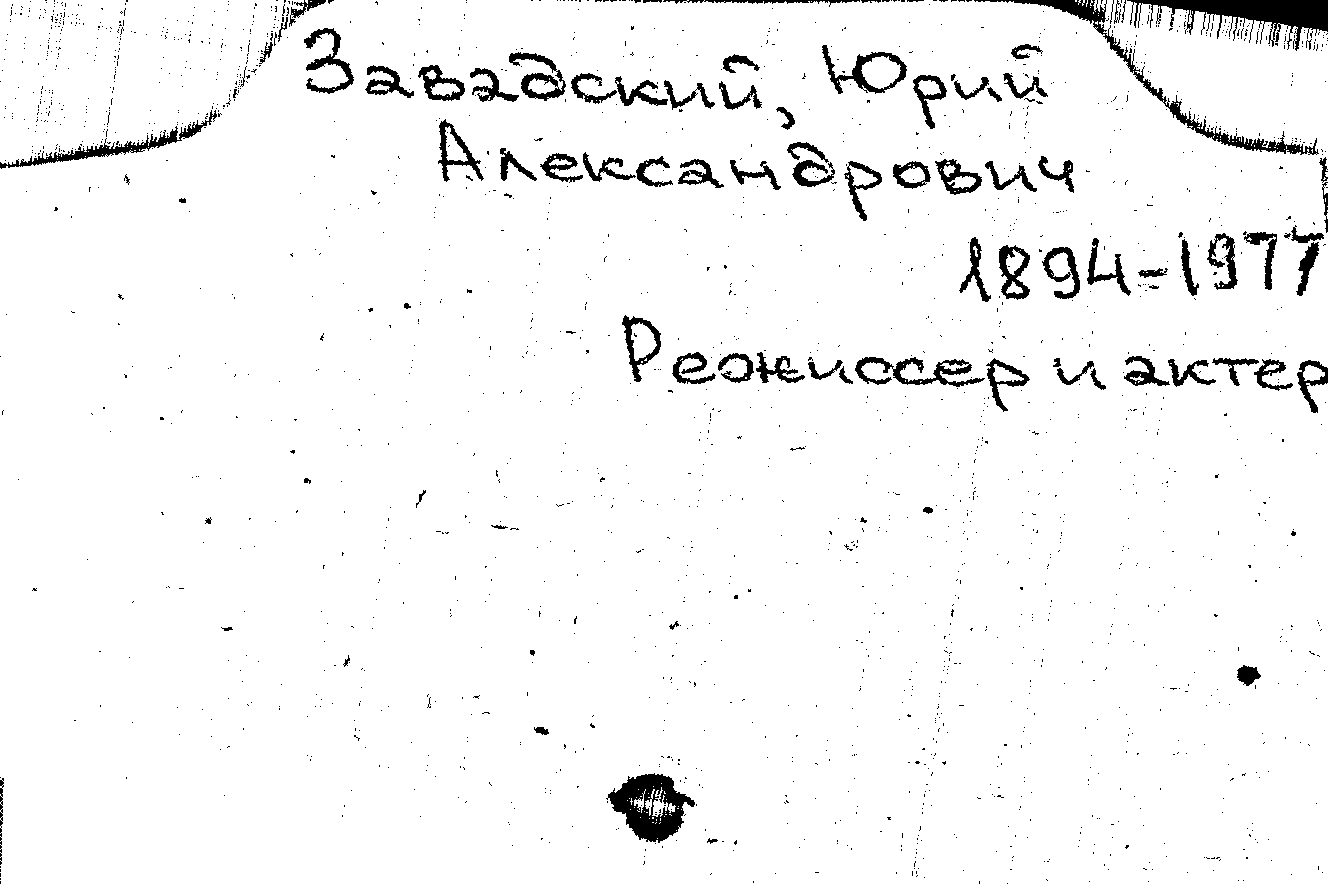 Завадский, Юрий
Александрович
1894-1977
Режиссер и актер